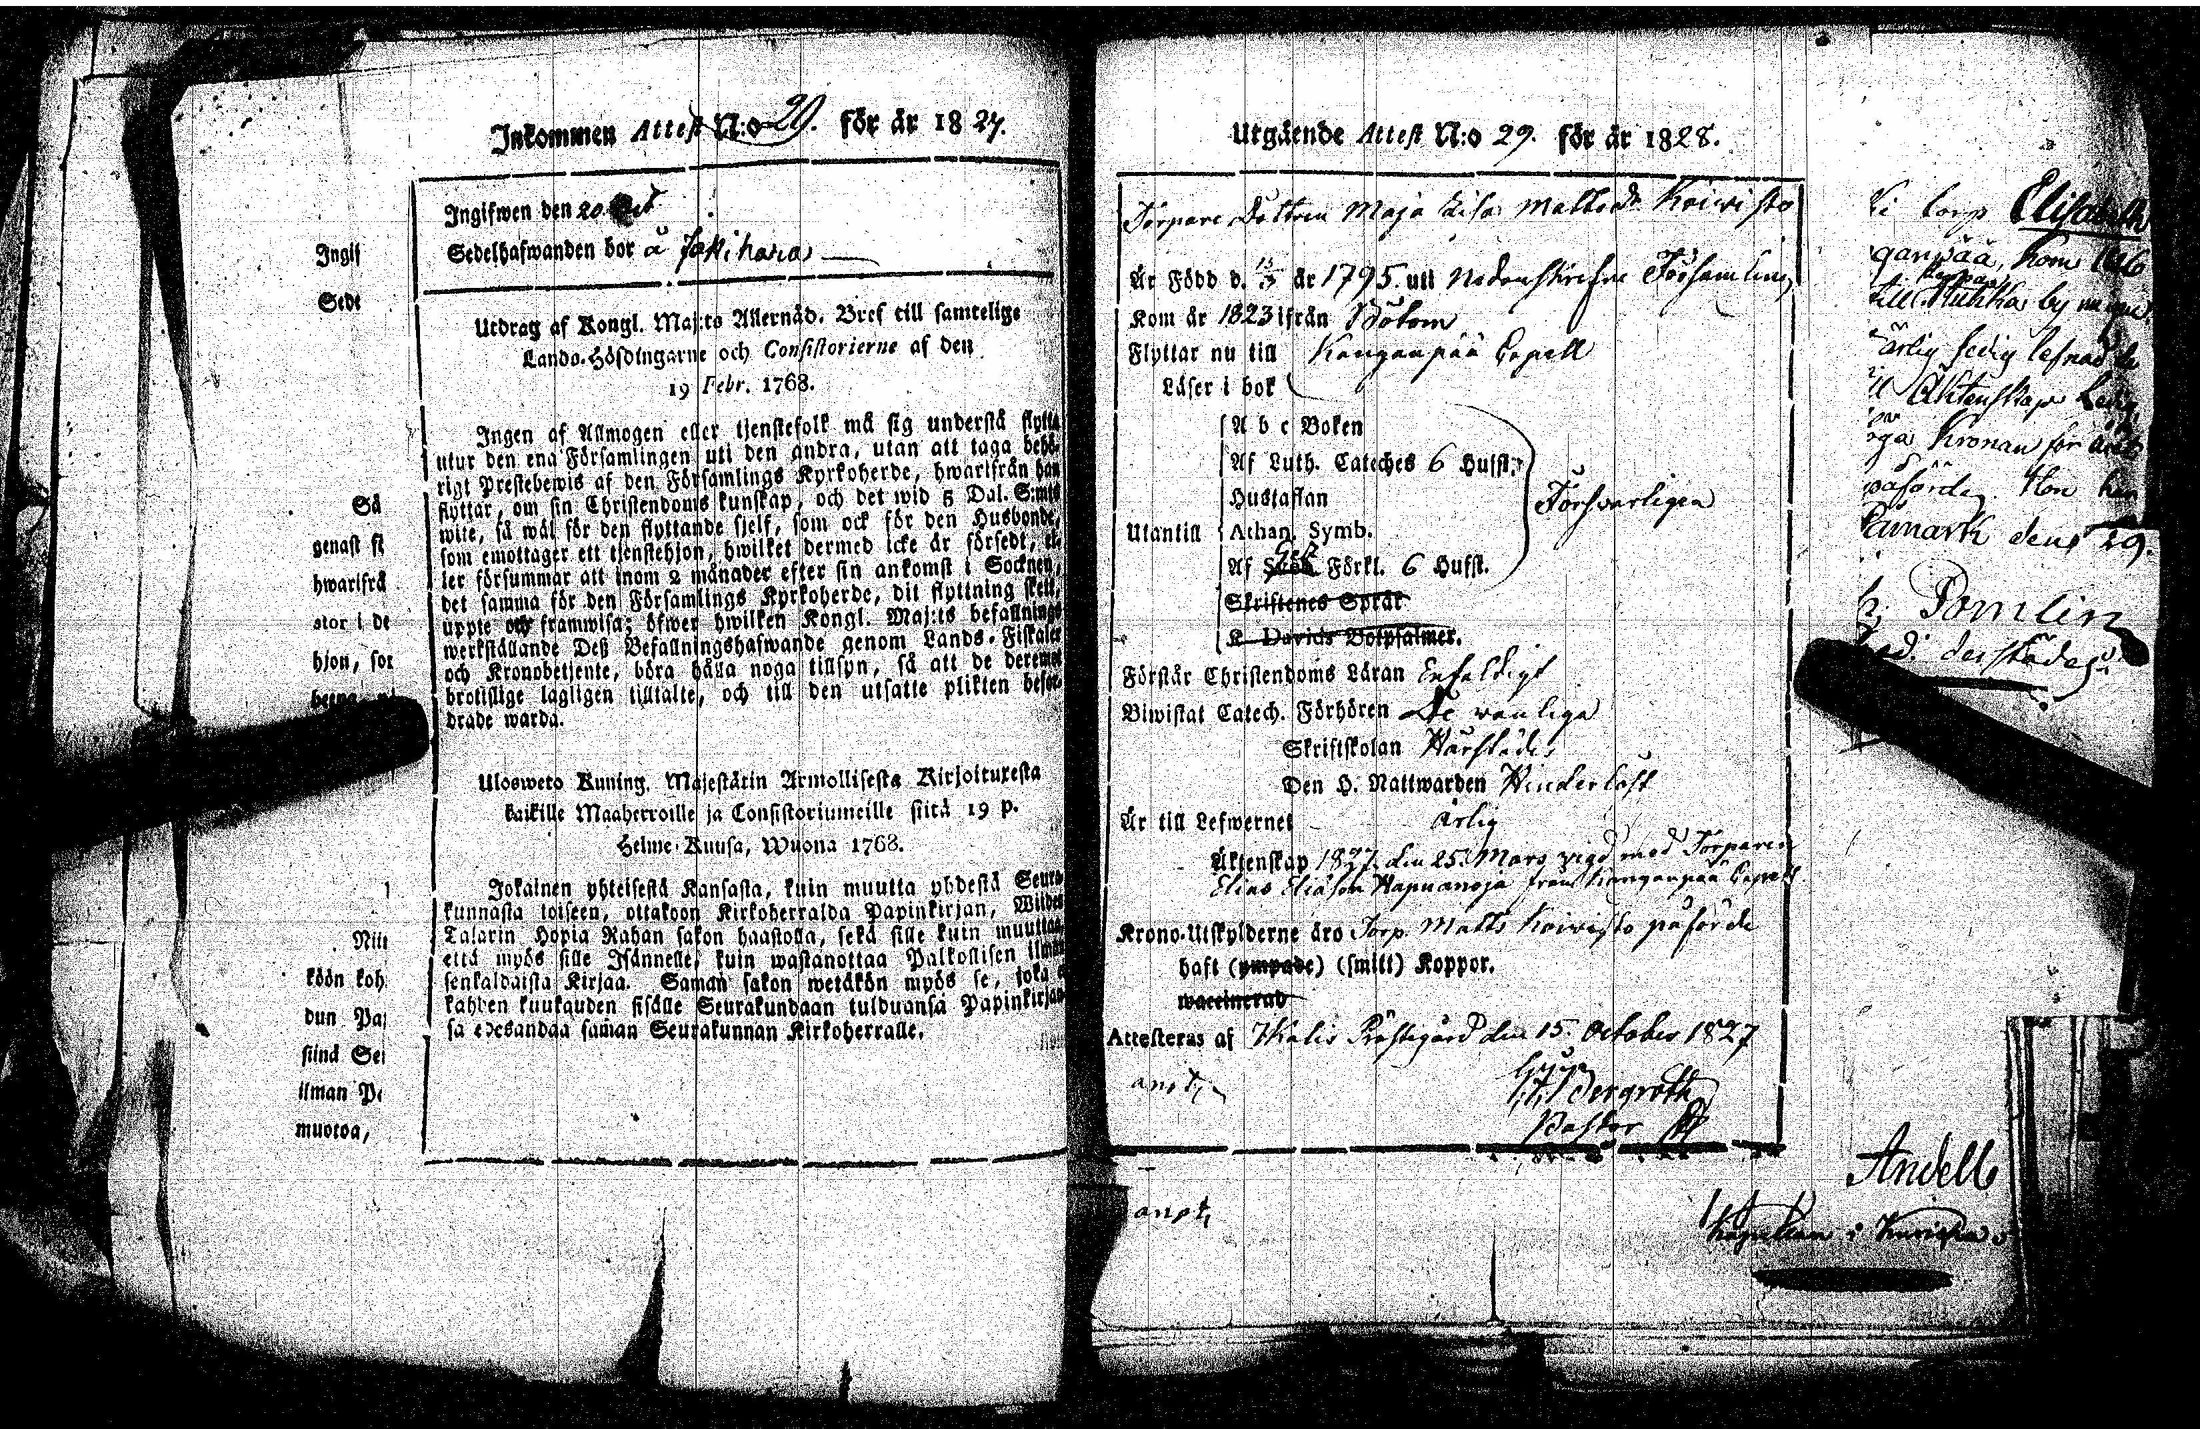 Inkommen Attest N:o 29. för är 1827.
Ingifwen den 20 Oct
Sedelhafwanden bor å Jättikara
Utdrag af Kongl. Maj:ts Allernåd. Bref till samtelige
Lands-Höfdingarne och Consistorierne af den
19 Febr. 1768.
Ingen af Allmogen eller tjenstefolk må sig understå flytta
utur den ena Församlingen uti den andra, utan att taga behö-
rigt Prestebewis af den Församlings Kyrkoherde, hwarifrån han
flyttar, om sin Christendoms kunskap, och det wid 5 Dal. S:mts
wite, så wäl för den flyttande sjelf, som ock för den Husbonde,
som emottager ett tjenstehjon, hwilket dermed icke är försedt, el-
ler försummar att inom 2 månader efter sin ankomst i Socknen,
det samma för den Församlings Kyrkoherde, dit flyttning skett,
uppte och framwisa; öfwer hwilken Kongl. Maj:ts befallnings
werkställande Deß Befallningshafwande genom Lands-Fiskaler
och Kronobetjente, böra hålla noga tillsyn, så att de deremot
brotslige lagligen tilltalte, och till den utsatte plikten befor-
drade warda.
Ulosweto Kuning. Majestätin Armollisesta Kirjoituxesta
kaikille Maaherroille ja Consistoriumeille siitä 19 p.
Helme-Kuusa, Wuona 1768.
Jokainen yhteisestä Kansasta, kuin muutta yhdestä Seura-
kunnasta toiseen, ottakoon Kirkoherralda Papinkirjan, Wiiden
Talarin Hopia Rahan sakon haastolla, sekä sille kuin muuttaa
että myös sille Isännelle, kuin wastanottaa Palkollisen ilman
senkaldaista Kirjaa. Saman sakon wetäkön myös se, joka ei
kahden kuukauden sisälle Seurakundaan tulduansa Papinkirjan-
sa edesandaa saman Seurakunnan Kirkoherralle.
Ingif
Sede
Så
genast fl
hwarifrå
ator i de
hjon, for
Niit
köön koh
dun Pa
siinä Sei
ilman Pa
muotoa,
Utgående Attest N:o 29. för år 1828.
Torpare Dottren Maja Lisa Mattsdr Koiwisto
Är Född d. 15/3 år 1795. uti Nedanskrefne Församling
Kom år 1823 ifrån Bötom
Flyttar nu till Kangaupää Capell
Läser i bok
A b c Boken
Af Luth. Cateches 6 Hufst.
Hustaflan
Utantill
Athan. Symb.
Försvarligen
Af Sveb. Förkl. 6 Hufst.
Skriftenes Språk
K. Davids Botpsalmer.
Förstår Christendoms Läran Enfaldigt
Biwistat Catech. Förhören De wanliga
Skriftskolan Härstädes
Den H. Nattwarden Hinderlöst
Är till Lefwernet Ärlig
Äktenskap 1827 den 25. Mars vigd med Torparen
Elias Eliasson Hapuanoja från Kangaupää Capell
Krono-Utskylderne äro Torp. Matts Koiwisto påförde
haft (ympade) (smitt) Koppor.
waccinerad
Attesteras af Ikalis Prästegård den 15. October 1827
Bergroth
Pastor
Torp Elisabeth
kom 1826
by
ärlig sedig lefnad
Äktenskap Ledig
Kronan för året
påförde. Hon
den 29.
Pomlin
derstädes
Andell
Kapellan i Kurikka